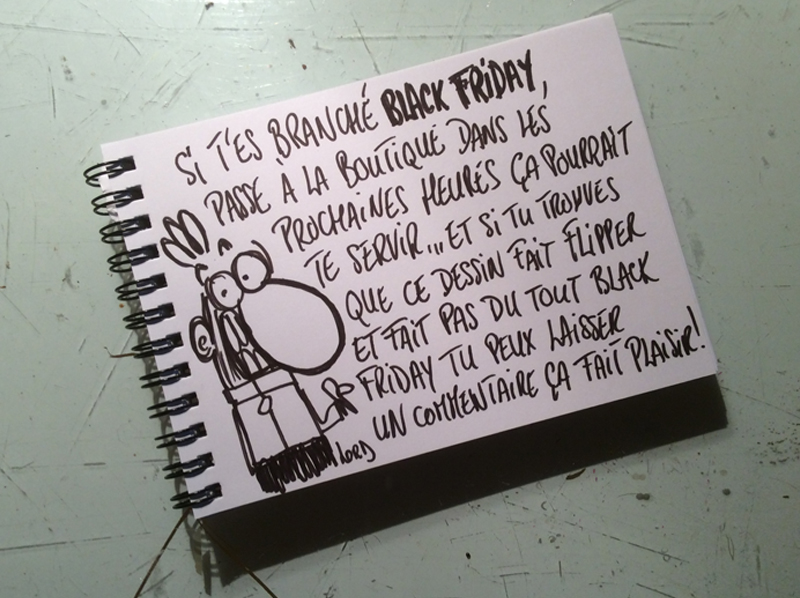 SI T'ES BRANCHÉ BLACK FRIDAY,
PASSE À LA BOUTIQUE DANS LES
PROCHAINES HEURES ÇA POURRAIT
TE SERVIR... ET SI TU TROUVES
QUE CE DESSIN FAIT FLIPPER
ET FAIT PAS DU TOUT BLACK
FRIDAY TU PEUX LAISSER
UN COMMENTAIRE ÇA FAIT PLAISIR!
LORD